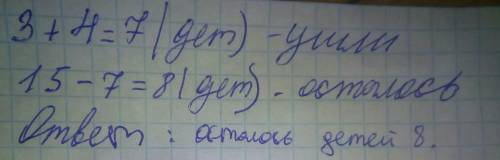 3 + 4 = 7 (дет) - ушли
15 - 7 = 8 (дет) - осталось
Ответ : осталось детей 8.